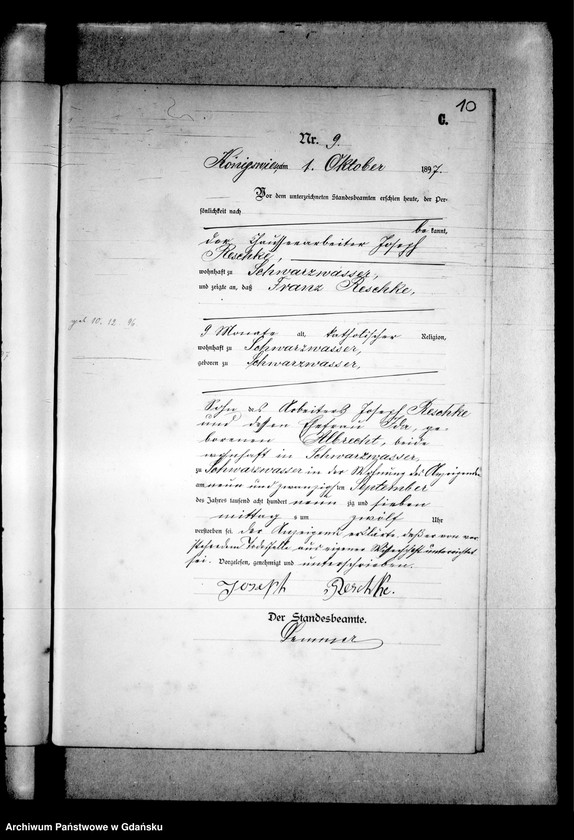 10
C.
Nr. 9.
am 1. Oktober 1897.
Vor dem unterzeichneten Standesbeamten erschien heute, der Per-
sönlichkeit nach
be kannt,
der Chausseearbeiter Joseph
Reschke,
wohnhaft zu Schwarzwasser,
und zeigte an, daß Franz Reschke,
geb. 10. 12 96
9 Monate alt, katholischer Religion,
wohnhaft zu Schwarzwasser,
geboren zu Schwarzwasser,
Sohn des Arbeiters Joseph Reschke
und dessen Ehefrau Ida, ge-
borenen Albrecht, beide
wohnhaft in Schwarzwasser,
zu Schwarzwasser in der Wohnung des Anzeigenden
am neun und zwanzigsten September
des Jahres tausend acht hundert neun zig und sieben
mittag s um zwölf Uhr
verstorben sei. Der Anzeigende erklärte, daß er von vor
stehendem Todesfalle aus eigener Wissenschaft unterrichtet
sei. Vorgelesen, genehmigt und unterschrieben.
Joseph Reschke.
Der Standesbeamte.
Archiwum Państwowe w Gdańsku